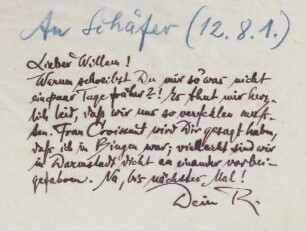 An Schäfer (12.8.1.)
Lieber Willem!
Warum schreibst Du mir so was nicht
ein paar Tage früher?! Es thut mir herz-
lich leid, daß wir uns so verfehlen muß-
ten. Frau Croissant wird Dir gesagt haben,
daß ich in Bingen war; vielleicht sind wir
in Darmstadt dicht an einander vorbei-
gefahren. Na, bis nächstes Mal!
Dein R.